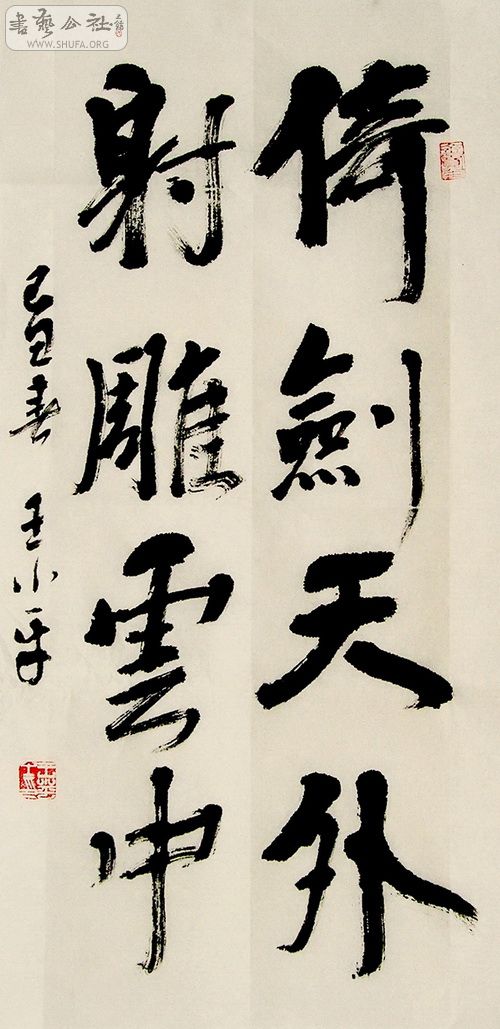 倚劍天外
射雕雲中
己丑春 王小平
書藝公社
WWW.SHUFA.ORG